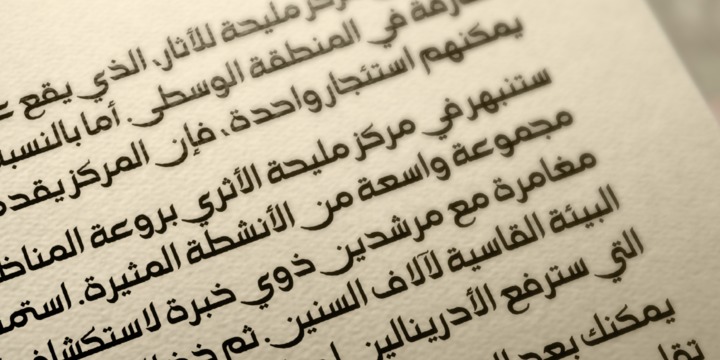 مركز مليحة للآثار، الذي يقع
في المنطقة الوسطى. أما بالنسبة
يمكنهم استئجار واحدة، فإن المركز يقدم
ستنبهر في مركز مليحة الأثري بروعة المناظر
مجموعة واسعة من الأنشطة المثيرة.
مغامرة مع مرشدين ذوي خبرة لاستكشاف
البيئة القاسية لآلاف السنين. ثم
التي سترفع الأدرينالين
يمكنك بعد